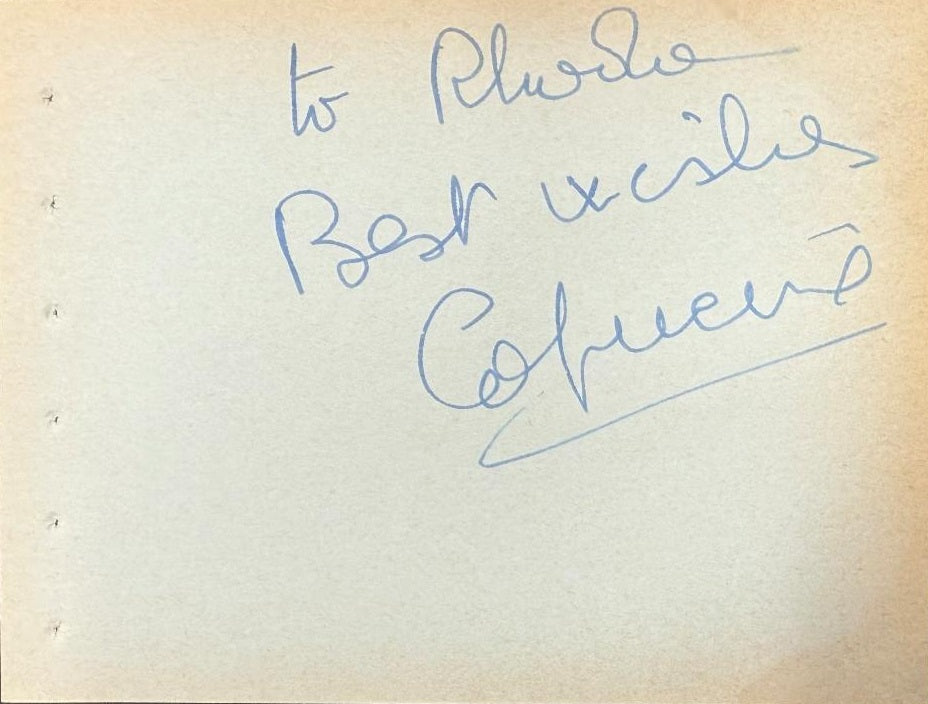 to Rhoda
Best wishes
Capucine